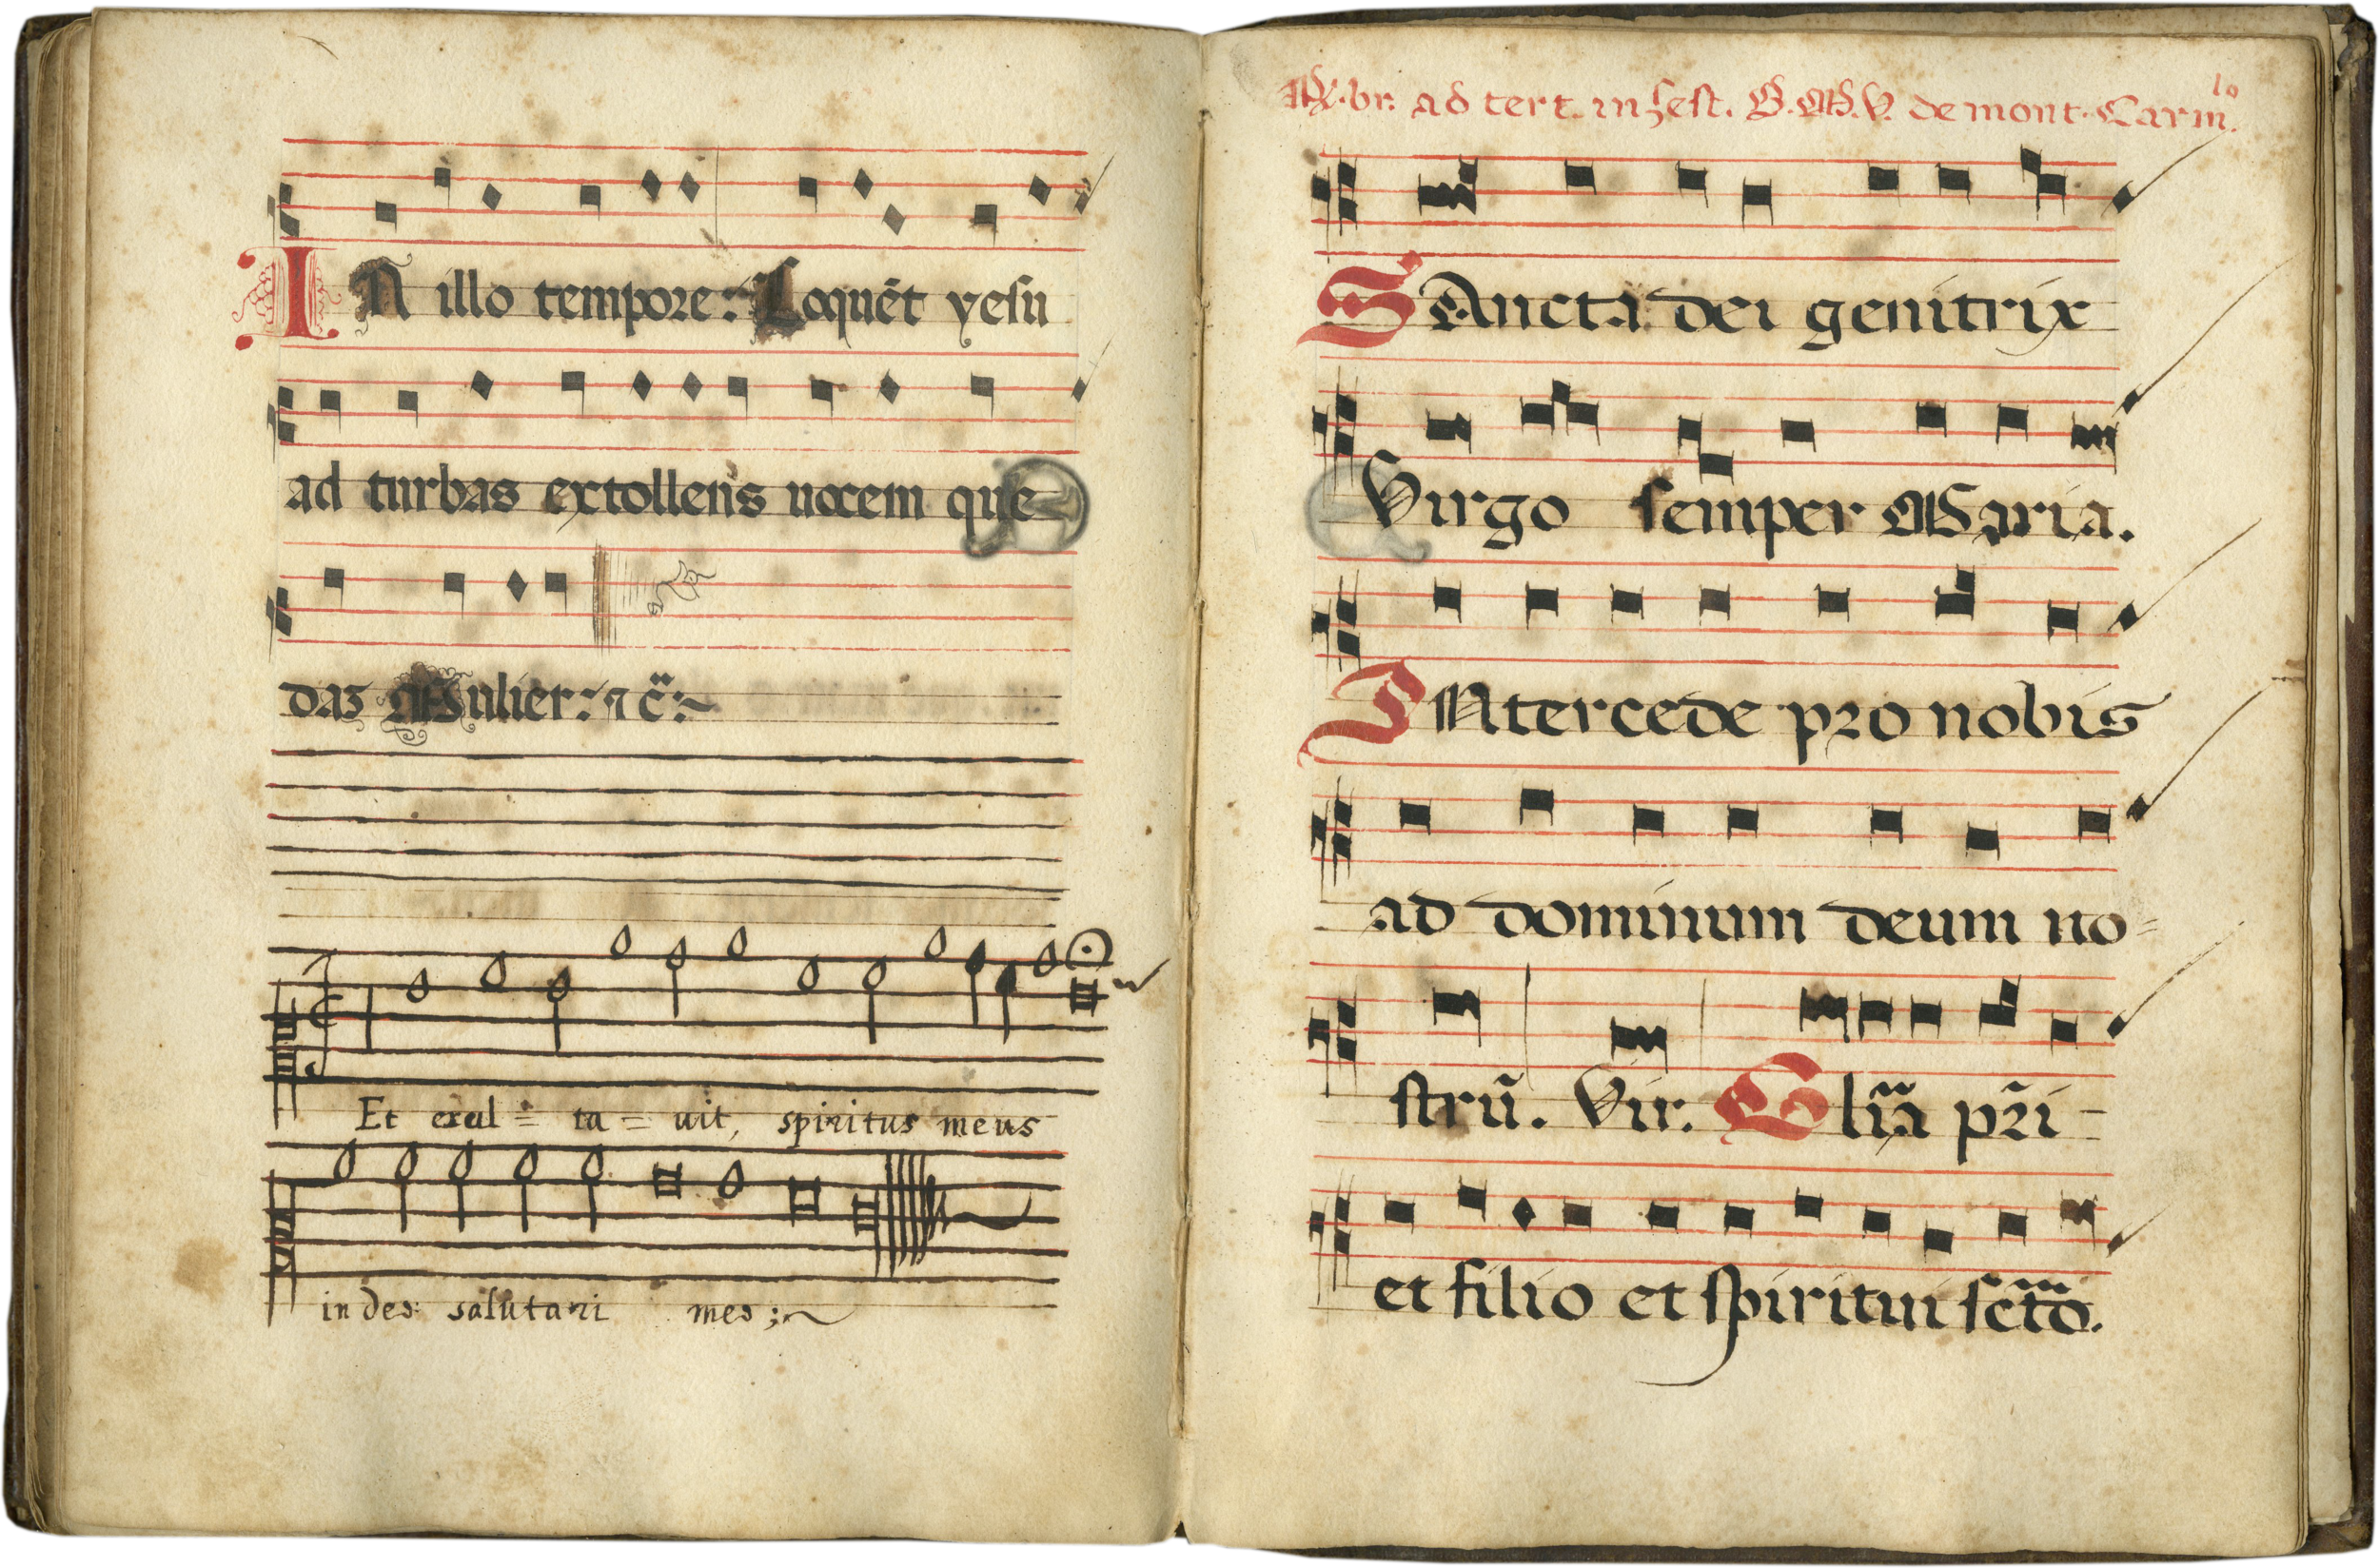 IN illo tempore: Loquēt yesu
ad turbas extollens uocem que
daz Mulier: ⁊ c̈:~
Et exul = ta = uit, spiritus meus
in deo salutari meo ;~
℟.br. ad tert. in fest. B.M.V. de mont. Carmlo.
SAncta dei genitrix
Virgo semper Maria.
INtercede pro nobis
ad dominum deum no=
strū. Vir. Glīa pr̄i-
et filio et spiritui sctō.